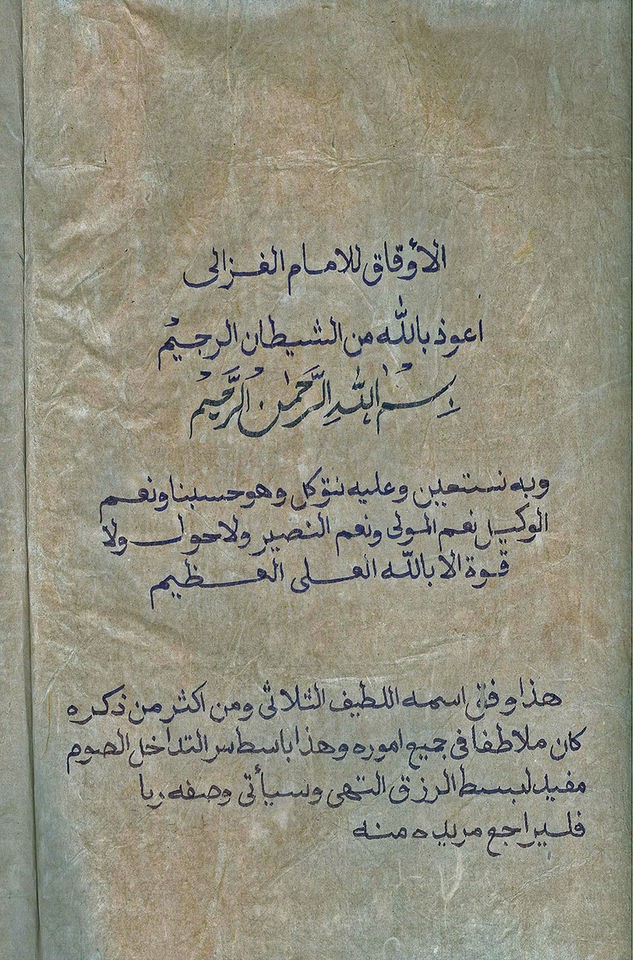 الأوقاق للامام الغزالى
اعوذ بالله من الشيطان الرجيم
بِسْمِ اللَّهِ الرَّحْمٰنِ الرَّحِيمِ
وبه نستعين وعليه نتوكل وهو حسبنا ونعم
الوكيل نعم المولى ونعم النصير ولا حول ولا
قوة الا بالله العلى العظيم
هذا وفق اسمه اللطيف الثلاثى ومن اكثر من ذكره
كان ملاطفا فى جميع اموره وهذا باسط سر التداخل الصوم
مفيد لبسط الرزق انتهى وسيأتى وصفه
فليراجع مريده منه